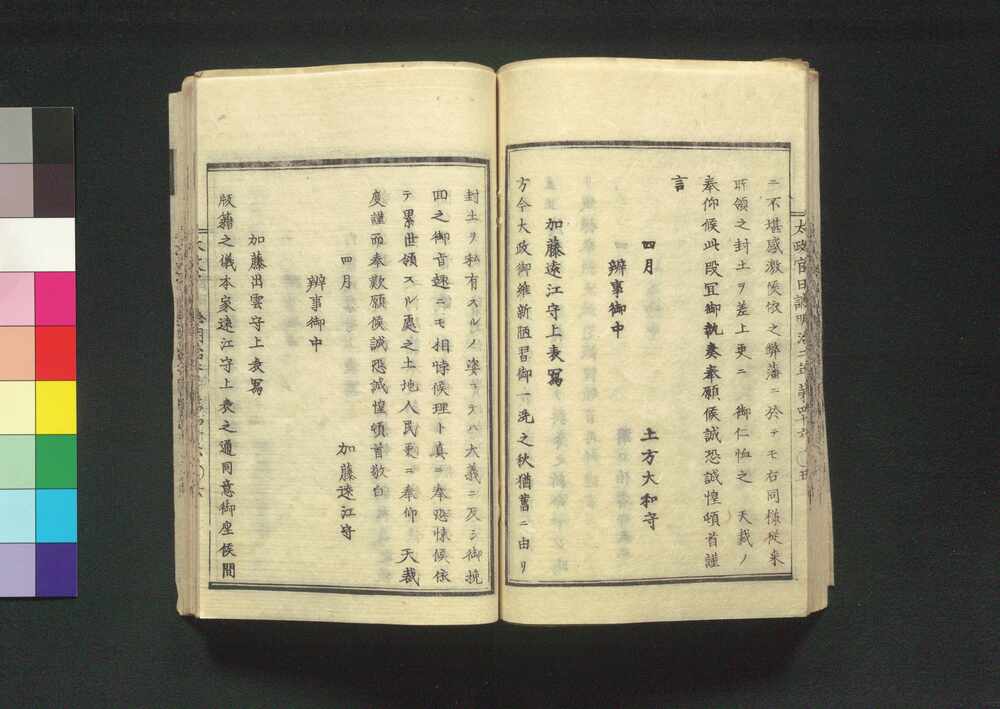 太政官日誌明治二年 第四十六 五
ニ不堪感激候依之弊藩ニ於テモ右同様従来
所領之封土ヲ差上更ニ 御仁恤之 天裁ノ
奉仰候此段宜御執奏奉願候誠恐誠惶頓首謹
言
四月 土方大和守
辨事御中
加藤遠江守上表寫
方今大政御維新陋習御一洗之秋猶舊ニ由リ
封土ヲ私有スルノ姿ニテハ大義ニ反シ御挽
回之御旨趣ニモ相悖候理ト真ニ奉恐悚候依
テ累世領スル處之土地人民更ニ奉仰 天裁
度謹而奉歎願候誠恐誠惶頓首敬白
四月 加藤遠江守
辨事御中
加藤出雲守上表寫
版籍之儀本家遠江守上表之通同意御座候間